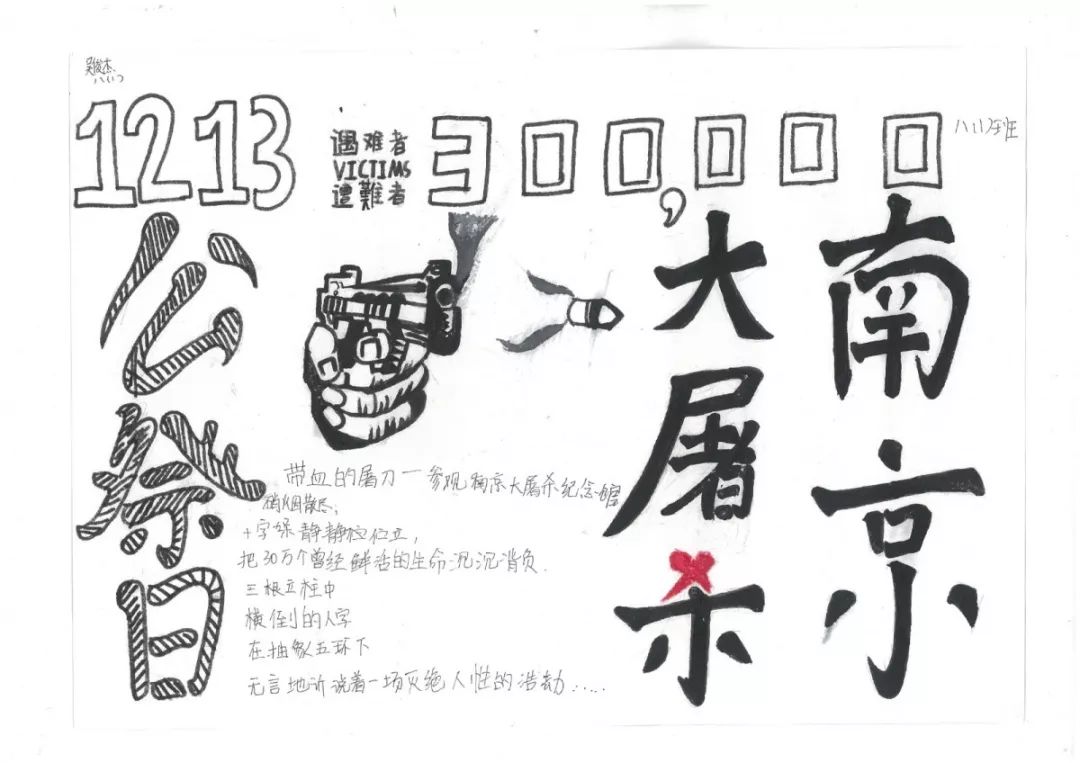 吴俊杰
八(1)
1213
遇难者
VICTIMS
遭難者
300,000
八(1)班
公祭日
南京
大屠杀
带血的屠刀一参观南京大屠杀纪念馆
硝烟散尽,
十字架静静伫立,
把30万个曾经鲜活的生命沉沉背负.
三根立柱中
横倒的人字
在抽象五环下
无言地诉说着一场灭绝人性的浩劫......